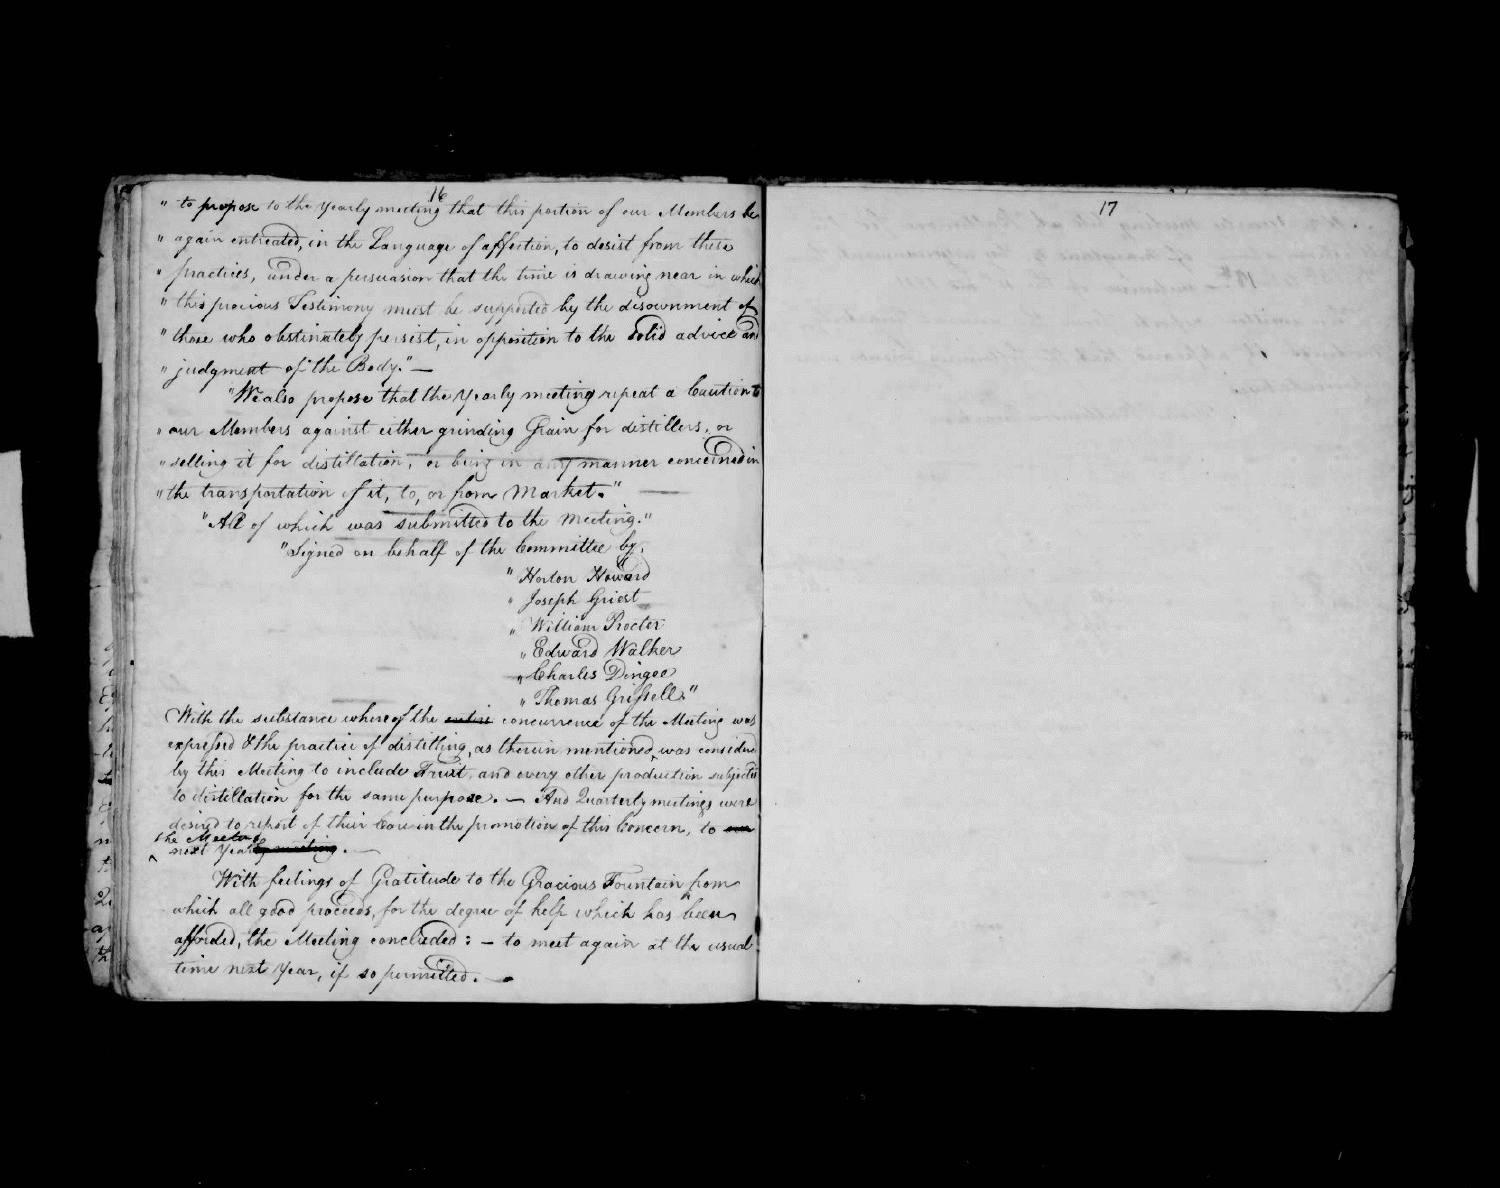 16
" to propose to the Yearly meeting that this portion of our Members be
" again entreated, in the Language of affection, to desist from these
" practices, under a persuasion that the time is drawing near in which
" this precious Testimony must be supported by the disownment of
" those who obstinately persist, in opposition to the solid advice and
" judgment of the Body." —
"We also propose that the Yearly meeting repeat a Caution to
" our Members against either grinding Grain for distillers, or
" selling it for distillation, or being in any manner concerned in
" the transportation of it, to, or from Market."
"All of which was submitted to the Meeting."
"Signed on behalf of the Committee by,
" Horton Howard
" Joseph Griest
" William Procter
" Edward Walker
" Charles Dingee
" Thomas Grissell."
With the substance whereof the entire concurrence of the Meeting was
expressed & the practice of distilling, as therein mentioned, was considered
by this Meeting to include Fruit, and every other production subjected
to distillation for the same purpose. — And Quarterly meetings were
desired to report of their Care in the promotion of this Concern, to our
the Meeting
next Yearly meeting. —
With feelings of Gratitude to the Gracious Fountain from
which all good proceeds, for the degree of help which has been
afforded, the Meeting concluded: — to meet again at the usual
time next Year, if so permitted. —
17